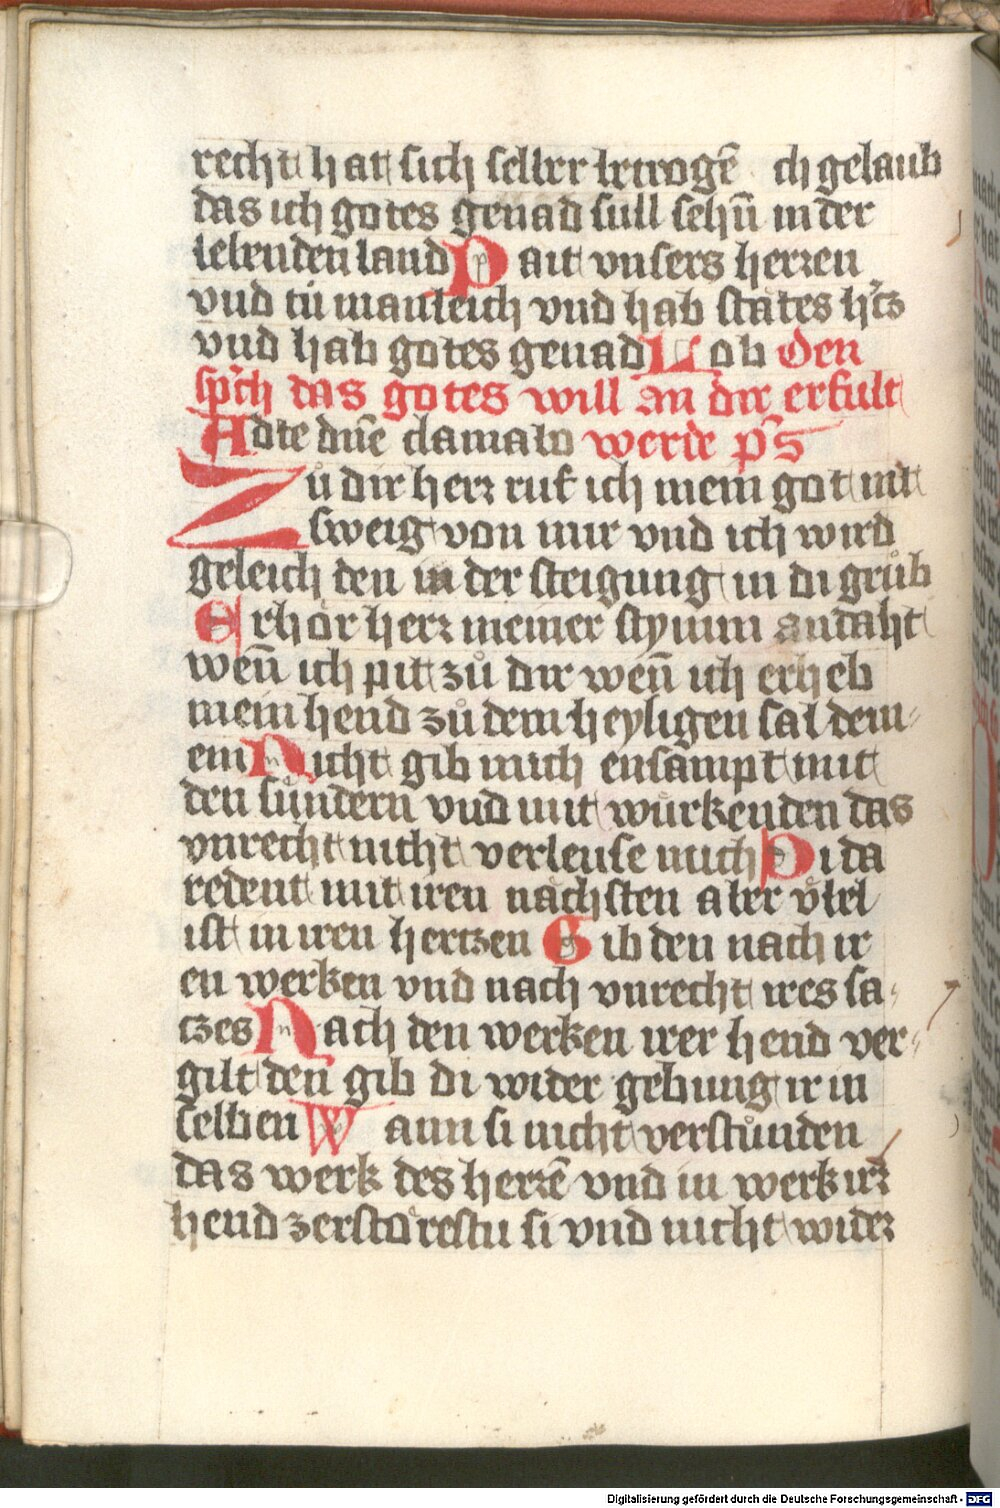 recht hat sich selber betrogē ch gelaub
das ich gotes genad sull sehn̄ in der
lebenden land Pait vnsers herzen
vnd tu manleich vnd hab stätes hʼcz
vnd hab gotes genad Lob Den
spʼch das gotes will an dir erfult
Adte dn̄e clamabo werde pˢs
Zů dir herz ruf ich mein got nit
sweig von mir vnd ich wird
geleich den in der steigung in di grůb
Erhör herz meiner stymm andaht
wen̄ ich pit zů dir wen̄ ich erheb
mein hend zů dem heyligen sal dein-
em Nicht gib mich ensampt mit
den sůndern vnd mit wůrkenden das
vnrecht nicht verleuse mich Di da
redent mit iren nächsten aber vͤbel
ist in iren hertzen Gib den nach ir
en werken vnd nach vnrecht ires sa-
czes Nach den werken irer hend ver-
gilt den gib di wider gebung ir in
selben Wann si nicht verstůnden
das werk des herzē vnd in werk irʼ
hend zerstörestu si vnd nicht wider
Digitalisierung gefördert durch die Deutsche Forschungsgemeinschaft - DFG